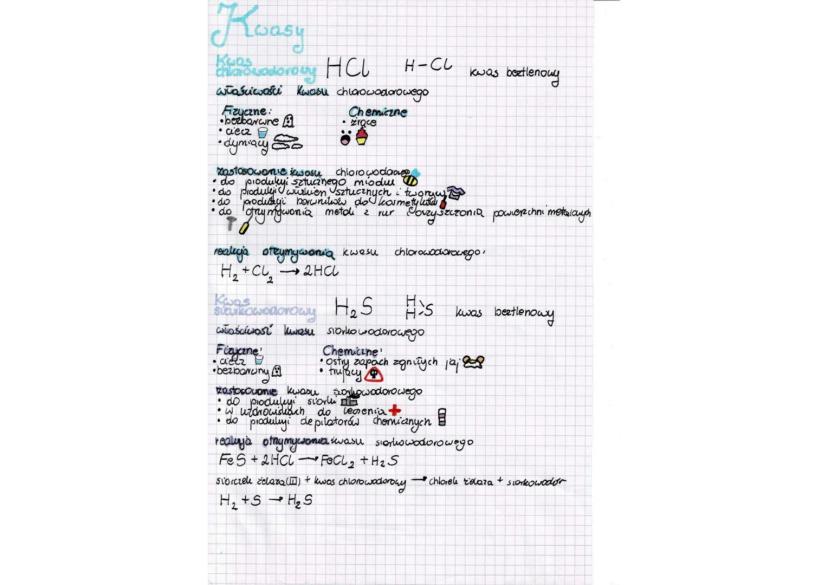 Kwasy
Kwas chlorowodorowy HCl H-Cl kwas beztlenowy
właściwości kwasu chlorowodorowego
Fizyczne: Chemiczne
• bezbarwne • żrące
• ciecz
• dymiący
zastosowanie kwasu chlorowodorowego
• do produkcji sztucznego miodu
• do produkcji włókien sztucznych i tworzyw
• do produkcji barwników do kosmetyków
• do otrzymywania metali z rur i oczyszczania powierzchni metalowych
reakcja otrzymywania kwasu chlorowodorowego:
H₂ + Cl₂ → 2HCl
Kwas siarkowodorowy H₂S H H S kwas beztlenowy
właściwość kwasu siarkowodorowego
Fizyczne: Chemiczne:
• ciecz • ostry zapach zgniłych jaj
• bezbarwny • trujący
zastosowanie kwasu siarkowodorowego
• do produkcji siarki
• w uzdrowiskach do leczenia
• do produkcji depilatorów chemicznych
reakcja otrzymywania kwasu siarkowodorowego
FeS + 2HCl → FeCl₂ + H₂S
siarczek żelaza(II) + kwas chlorowodorowy → chlorek żelaza + siarkowodór
H₂ + S → H₂S